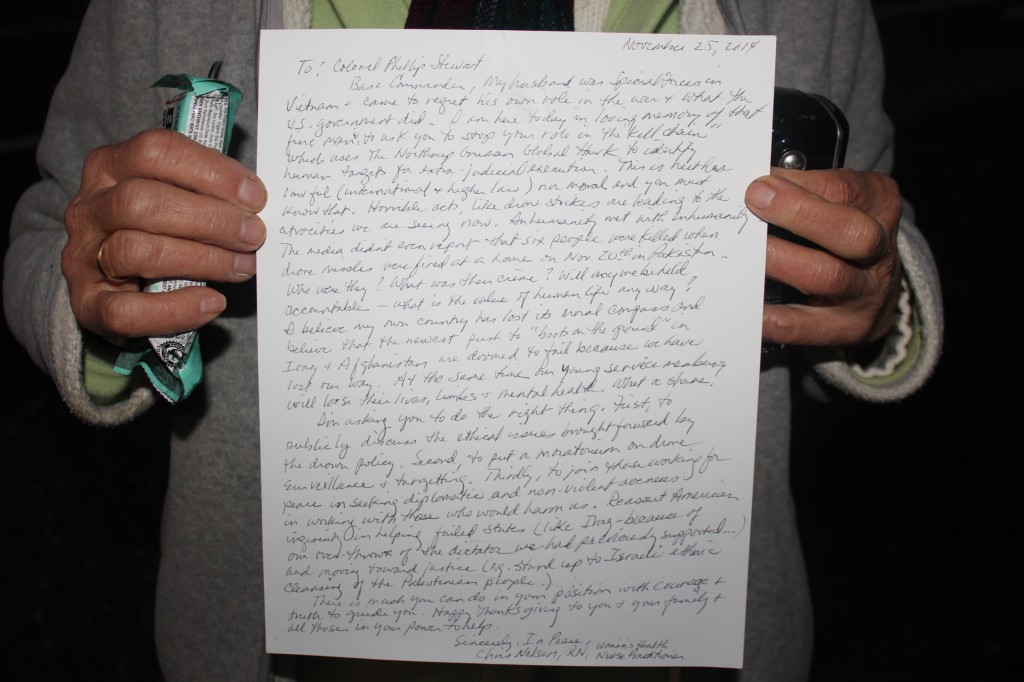 November 25, 2014
To: Colonel Phillip Stewart
Base Commander, My husband was Special Forces in
Vietnam + came to regret his own role in the war + what the
U.S. government did. I am here today in loving memory of that
fine man, to ask you to stop your role in the "kill chain"
which uses the Northrup Gruman Global Hawk to identify
human targets for extra-judicial execution. This is neither
lawful (international + higher law) nor moral and you must
know that. Horrible acts, like drone strikes are leading to the
atrocities we are seeing now. Inhumanity met with inhumanity
The media didn't even report that six people were killed when
drone missles were fired at a home on Nov. 20th in Pakistan.
Who were they? What was their crime? Will anyone be held
accountable - what is the value of human life any way?
I believe my own country has lost its moral compass and
believe that the newest push to "boots on the ground" in
Iraq + Afghanistan are doomed to fail because we have
lost our way. At the same time our young service members
will loose their lives, limbs + mental health. What a shame.
I'm asking you to do the right thing. First, to
publicly discuss the ethical issues brought forward by
the drown policy. Second, to put a moratorium on drone
surveillance + targetting. Thirdly, to join those working for
peace in seeking diplomatic and non-violent avenues
in working with those who would harm us. Reassert American
ingenuity in helping failed states (like Iraq - because of
our over-throws of the dictator we had previously supported...)
and moving toward justice (eg. stand up to Israeli ethnic
cleansing of the Palestinian people.)
There is much you can do in your position with courage +
truth to guide you. Happy Thanksgiving to you + your family +
all those in your power to help.
Sincerely, In Peace,
Chris Nelson, RN, Women's Health
Nurse Practitioner